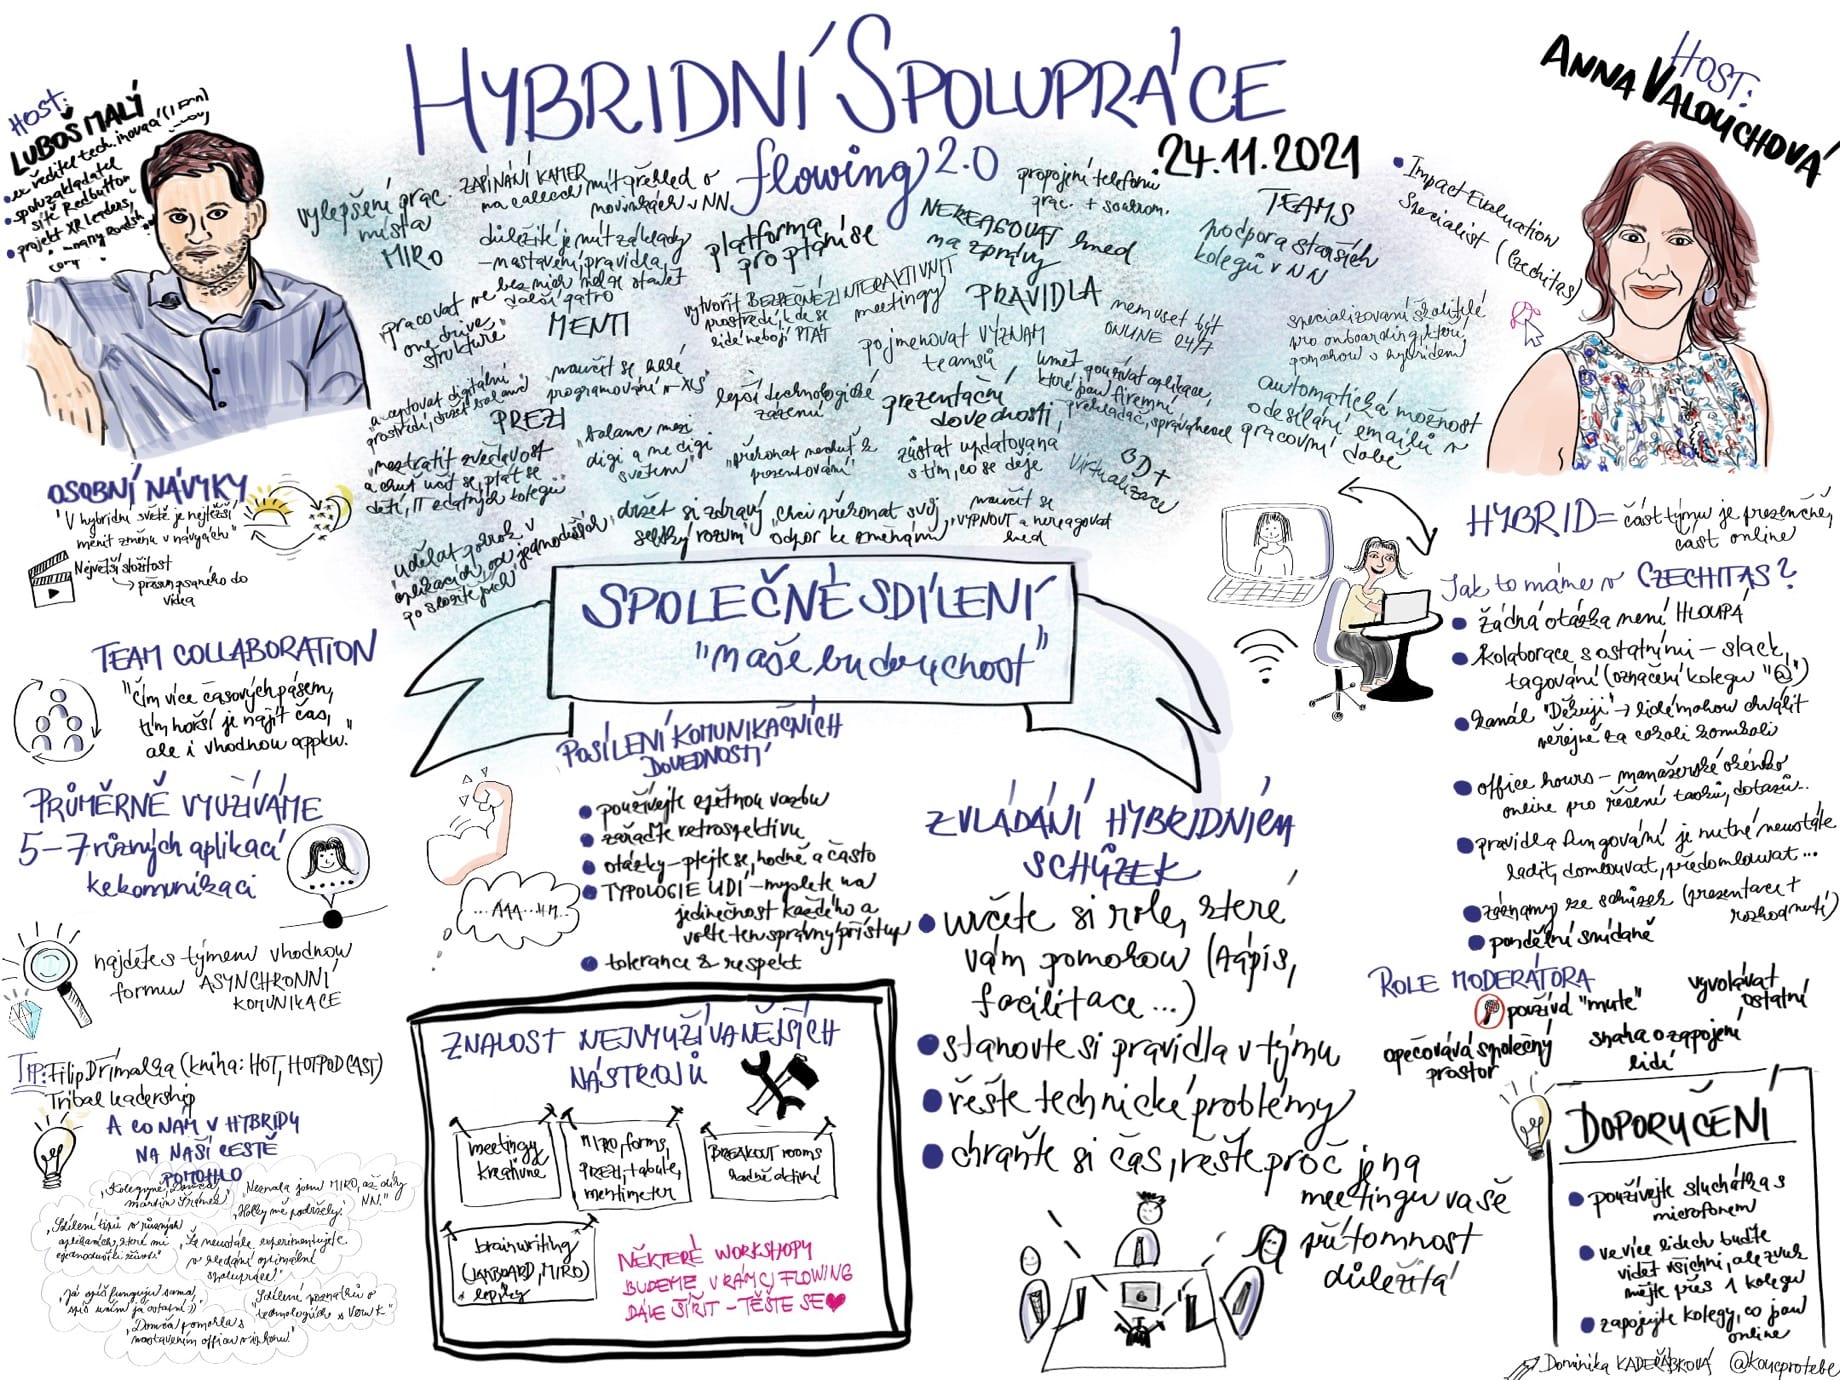 HYBRIDNÍ SPOLUPRÁCE
flowing 2.0
24.11.2021
HOST:
LUBOŠ MALÝ
• ex ředitel tech. inovací
• spoluzakladatel
sítě Redbutton
• projekt XR leaders,
HOST:
ANNA VALOUCHOVÁ
• Impact Evaluation
Specialist (Czechitas)
vylepšení prac.
místa
MIRO
ZAPÍNÁNÍ KAMER
na callech
mít přehled o
novinkách v NN
důležité je mít základy
– nastavení, pravidla,
bez nich nelze stavět
další patro
platforma
pro ptání se
NEREAGOVAT hned
na zprávy
propojení telefonu
prac. + soukrom.
TEAMS
podpora starších
kolegů v NN
"pracovat ve
one drive
struktuře"
MENTI
vytvořit BEZPEČNÉ
prostředí, kde se
lidé nebojí PTÁT
INTERAKTIVNÍ
meetingy
PRAVIDLA
nemuset být
ONLINE 24/7
pojmenovat VÝZNAM
teamsů
specializovaní školitelé
pro onboarding, kteří
pomohou s hybridem
"akceptovat digitální
prostředí, držet balanc"
PREZI
programování v XLS"
lepší technologické
zázemí
prezentační
dovednosti
umět používat aplikace,
které jsou firemní,
automatická možnost
odesílání emailů v
pracovní době
"neztratit zvědavost
a chuť učit se, ptát se
dětí, IT zdatných kolegů"
"balanc mezi
digi a ne digi
světem"
"překonat neduh z
prezentování"
zůstat updatovaná
s tím, co se děje
3D +
virtualizace
"udělat pokrok v
aplikacích, od jednodušších
po složitější"
"držet si zdravý
selský rozum"
"chci překonat svůj
odpor ke změnám"
naučit se
VYPNOUT a nereagovat
hned
SPOLEČNÉ SDÍLENÍ
"naše budoucnost"
OSOBNÍ NÁVYKY
"V hybridu světě je nejtěžší
měnit změnu v návycích"
Největší složitost
→ přesun psaného do
videa
TEAM COLLABORATION
"Čím více časových pásem,
tím horší je najít čas,
ale i vhodnou appku."
PRŮMĚRNĚ VYUŽÍVÁME
5–7 různých aplikací
ke komunikaci
najděte s týmem vhodnou
formu ASYNCHRONNÍ
KOMUNIKACE
TIP: Filip Dřímalka (kniha: HOT, HOT PODCAST)
Tribal leadership
A CO NÁM V HYBRIDU
NA NAŠÍ CESTĚ
POMOHLO
"Neznala jsem MIRO, až díky
NN."
"Holky mě podržely."
"Sdílení tipů v různých
aplikacích, které mi
zjednodušily život."
"Že neustále experimentujete
v hledání optimální
spolupráce"
"Domča pomohla s
POSÍLENÍ KOMUNIKAČNÍCH
DOVEDNOSTÍ
• používejte zpětnou vazbu
• zařaďte retrospektivu
• otázky – ptejte se, hodně a často
• TYPOLOGIE LIDÍ – myslete na
jedinečnost každého a
volte ten správný přístup
• tolerance & respekt
...AAA...HM...
ZNALOST NEJVYUŽÍVANĚJŠÍCH
NÁSTROJŮ
meetingy
kreativně
MIRO, forms,
PREZI, tabule,
mentimeter
BREAKOUT rooms
hodně aktivní
brainwriting
(JAMBOARD, MIRO)
+ lepíky
NĚKTERÉ WORKSHOPY
BUDEME V RÁMCI FLOWING
DÁLE ŠÍŘIT – TĚŠTE SE
ZVLÁDÁNÍ HYBRIDNÍCH
SCHŮZEK
• určete si role, které
vám pomohou (zápis,
facilitace...)
• stanovte si pravidla v týmu
• řešte technické problémy
• chraňte si čas, řešte proč je na
meetingu vaše
přítomnost
důležitá
HYBRID = část týmu je prezenčně,
část online
Jak to máme v CZECHITAS?
• žádná otázka není HLOUPÁ
• kolaborace s ostatními – slack,
tagování (označení kolegu "@")
• kanál "Děkuji" → lidé mohou chválit
veřejně za cokoli komukoli
• office hours – manažerské okénko
online pro řešení tasků, dotazů...
• pravidla fungování je nutné neustále
ladit, domlouvat, předomlouvat...
• záznamy ze schůzek (prezentace +
rozhodnutí)
• pondělní snídaně
ROLE MODERÁTORA
používá "mute"
vyvolávat
ostatní
opečovává společný
prostor
snaha o zapojení
lidí
DOPORUČENÍ
• používejte sluchátka s
mikrofonem
• ve více lidech buďte
vidět všichni, ale zvuk
mějte přes 1 kolegu
• zapojujte kolegy, co jsou
online
Dominika KADEŘÁBKOVÁ @koucprotebe